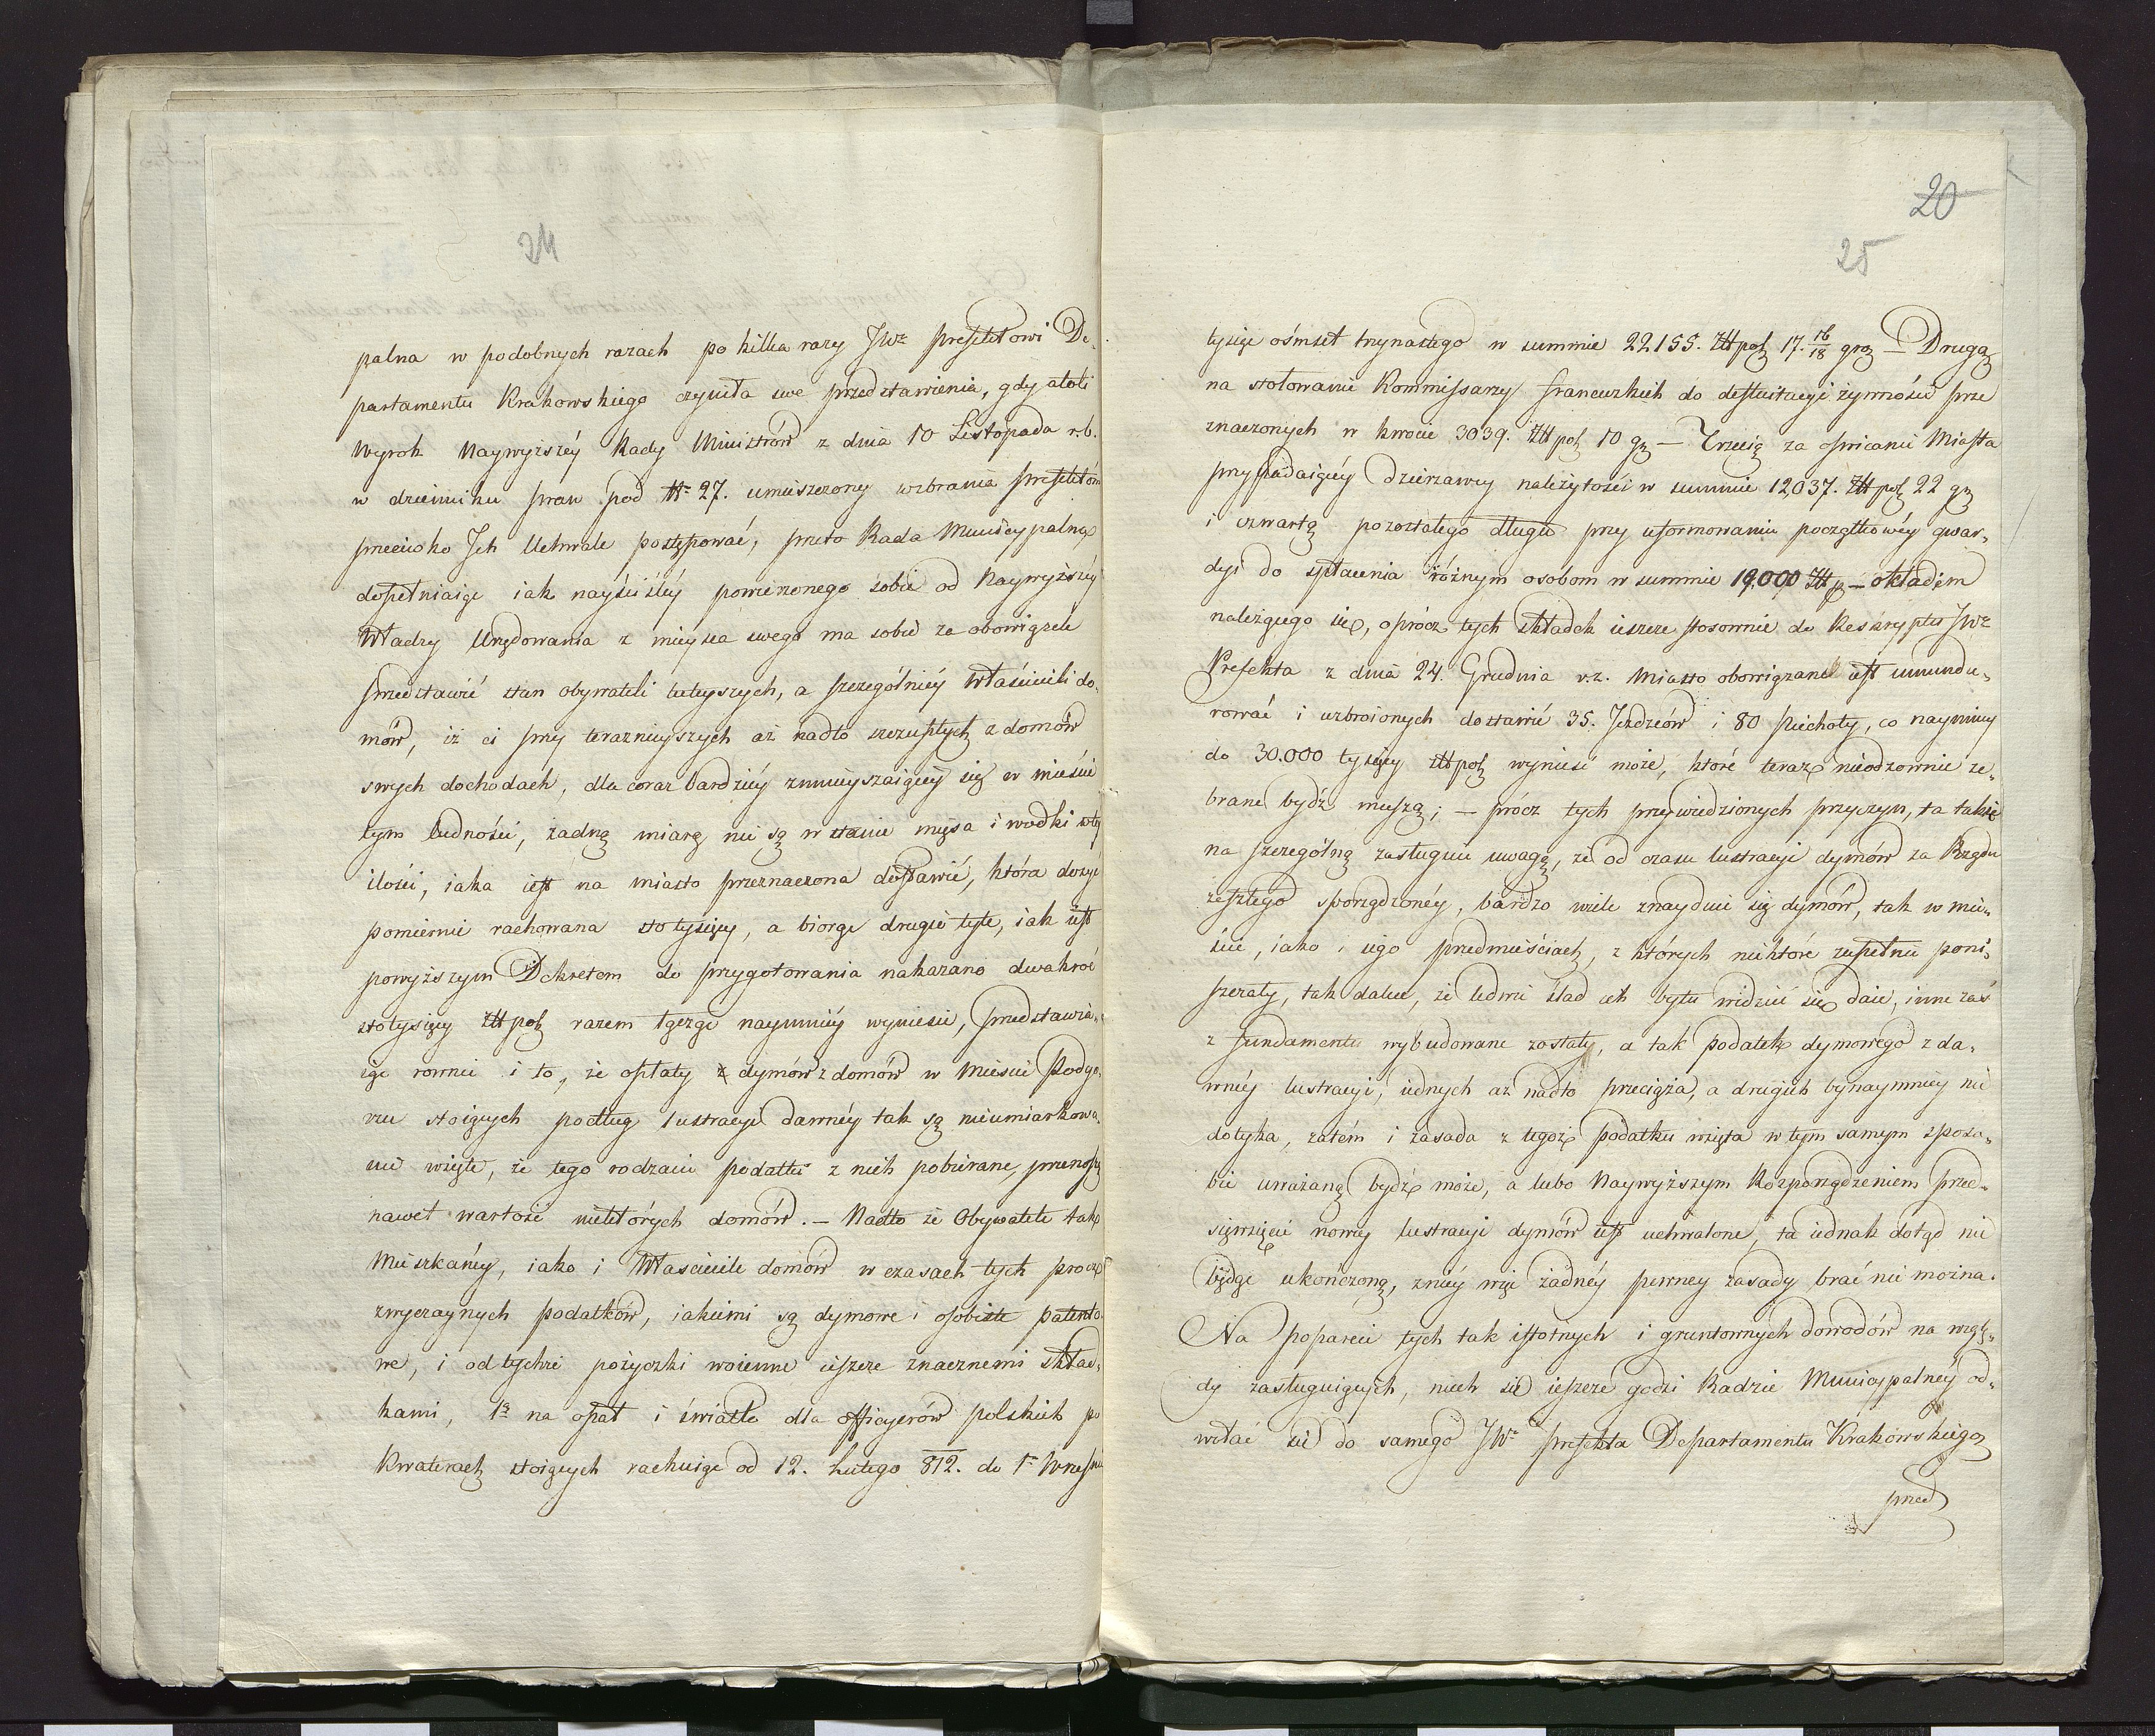 24
palna w podobnych razach po kilka razy JWº Prefektowi De-
partamentu Krakowskiego czyniła swe przedstawienia, gdy atoli
Wyrok Naywyższéy Rady Ministrów z dnia 10 Listopada r.b.
w dzienniku praw pod Nr 27. umieszczony wzbrania Prefektóm
przeciwko Ich Uchwale postępować, przeto Rada Municypalna
dopełniaiąc iak nayściśléy powierzonego sobie od Naywyższéy
Władzy Urzędowania z mieysca swego ma sobie za obowiązek
przedstawić stan obywateli tuteyszych, a szczególniéy Właścicieli do-
mów, iż ci przy teraznieyszych aż nadto szczupłych z domów
swych dochodach, dla coraz bardziéy zmnieyszaiącéy się w mieście
tym ludności, żadną miarą nie są w stanie mięsa i wodki w tey
ilości, iaka iest na miasto przeznaczona dostawić, która dosyć
pomiernie rachowana sto tysięcy, a biorąc drugie tyle, iak iest
powyższym Dekretem do przygotowania nakazano dwakroć
stotysięcy Złł pol. razem łącząc naymniéy wyniesie, przedstawia-
iąc rownie i to, że opłaty z dymów z domów w Mieście Podgó-
rzu stoiących podług lustracyi dawnéy tak są nieumiarkowa-
nie wzięte, że tego rodzaiu podatki z nich pobierane, przenoszą
nawet wartość niektórych domów. — Nadto że Obywatele tak
Mieszkańcy, iako i Właściciele domów w czasach tych procz
zwyczaynych podatków, iakiemi są dymowe i osobiste patento-
we, i od tychże pożyczki woienne ieszcze znacznemi skład-
kami, 1º na opał i światło dla officyerów polskich po
Kwaterach stoiących rachuiąc od 12. Lutego 812. do 1º Wrześni
20
25
tysiąc óśmset trzynastego w summie 22155. Złł pol. 17. 16/18 gro. — Drugą
na stołowanie Kommissarzy francuzkich do destuitucyi żywności prze
znaczonych w kwocie 3039. Złł pol. 10 gr — Trzecią za oświcanie Miasta
przypadaiącéy Dzierzawcy należytości w summie 12,037. Złł pol. 22 gr
i czwartą pozostałego długu przy uformowaniu początkowéy gwar-
dyi do spłacenia różnym osobom w summie 19,000 Złł p. — okładem
należącego się, oprócz tych składek ieszcze stosownie do Reskryptu JWº
Prefekta z dnia 24. Grudnia r.z. Miasto obowiązane iest umundu-
rować i uzbroionych dostawić 35. Jezdzców i 80 piechoty, co naymniey
do 30.000 tysięcy Złł pol. wynieść może, które teraz nieodzownie ze-
brane bydź muszą; — prócz tych przywiedzionych przyczyn, ta także
na szczególną zasługuie uwagę, że od czasu lustracyi dymów za Rządu
zeszłego sporządzonéy, bardzo wiele znayduie się dymów, tak w mie-
ście, iako i iego przedmieściach, z których niektóre zupełnie poni-
szczały, tak dalece, że ledwie ślad ich bytu widzieć się daie, inne zaś
z fundamentu wybudowane zostały, a tak podatek dymowego z da-
wnéy lustracyi, iednych aż nadto przeciąża, a drugich bynaymniey nie
dotyka, zatém i zasada z tegoż podatku wzięta w tym samym sposo-
bie uważaną bydź może, a lubo Naywyższym Rozporządzeniem przed-
sięwzięcie nowéy lustracyi dymów iest uchwalone, ta iednak dotąd nie
będąc ukończoną, z niéy więc żadnéy pewney zasady brać nie można.
Na poparcie tych tak istotnych i gruntownych dowodów na wzglę-
dy zasługuiących, niech się ieszcze godzi Radzie Municypalnéy od-
wołać się do samego JWº Prefekta Departamentu Krakowskiego
przed